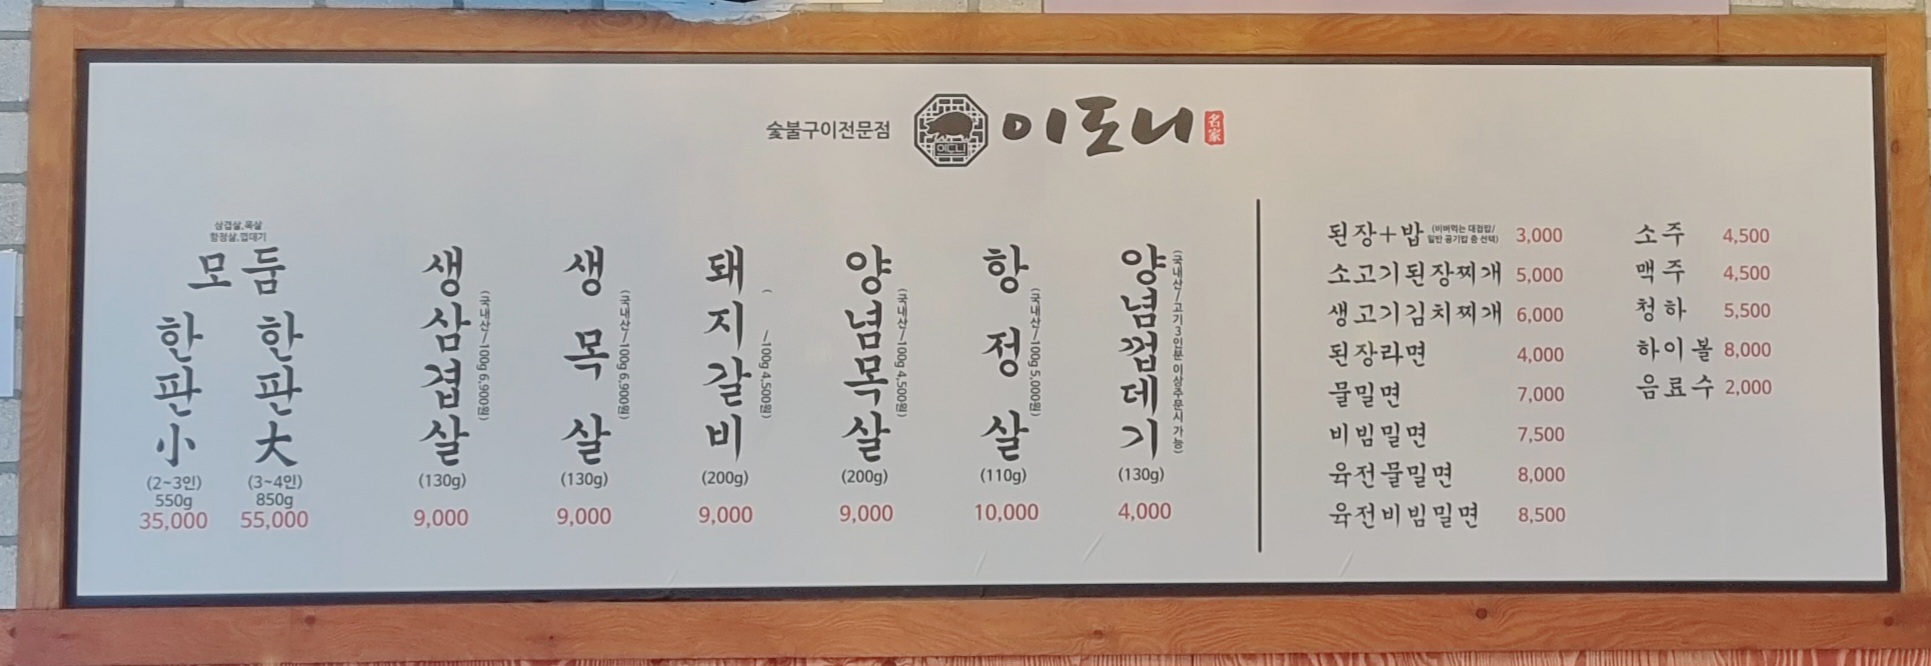 숯불구이전문점 이도니 이도니 名家
삼겹살,목살
항정살,껍대기
모둠
한판小
(2~3인)
550g
35,000
한판大
(3~4인)
850g
55,000
생삼겹살
(국내산/100g 6,900원)
(130g)
9,000
생목살
(국내산/100g 6,900원)
(130g)
9,000
돼지갈비
( /100g 4,500원)
(200g)
9,000
양념목살
(국내산/100g 4,500원)
(200g)
9,000
항정살
(국내산/100g 5,000원)
(110g)
10,000
양념껍데기
(국내산/고기 3인분 이상주문시 가능)
(130g)
4,000
된장+밥 (비벼먹는 대접밥/
일반 공기밥 중 선택) 3,000
소고기된장찌개 5,000
생고기김치찌개 6,000
된장라면 4,000
물밀면 7,000
비빔밀면 7,500
육전물밀면 8,000
육전비빔밀면 8,500
소주 4,500
맥주 4,500
청하 5,500
하이볼 8,000
음료수 2,000